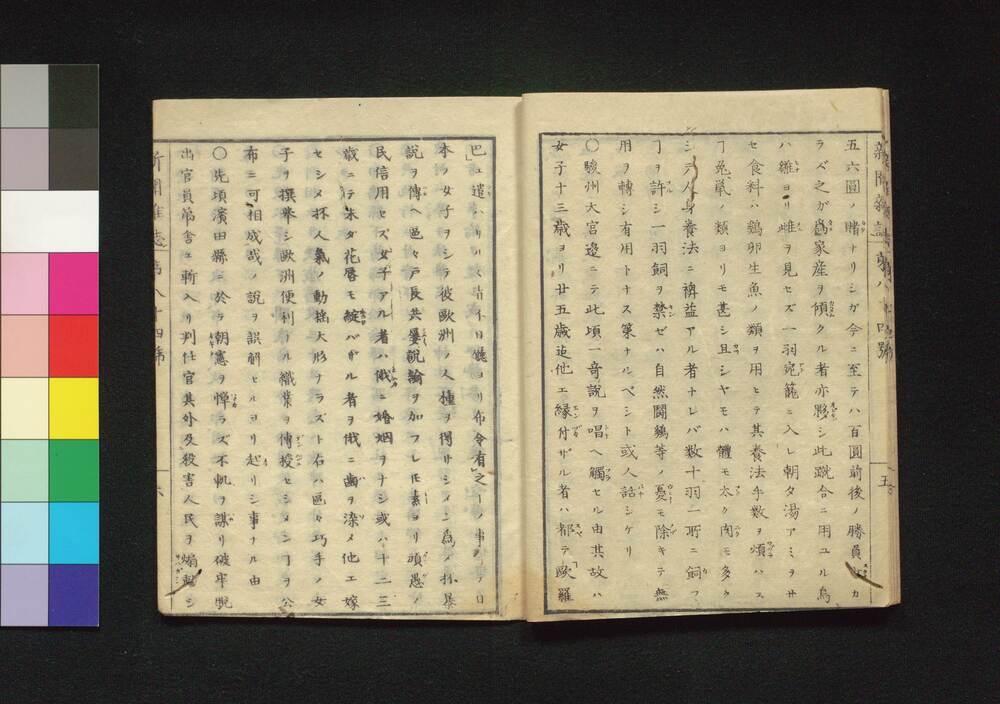 五六圓ノ賭ナリシガ今ニ至テハ百圓前後ノ勝負
ラベ之ガ爲家産ヲ傾クル者亦夥シ此蹴合ニ用ユル鳥
ハ雛ヨリ雌ヲ見セズ一羽宛籠ニ入レ朝夕湯アミヲサ
セ食料ハ鷄卵生魚ノ類ヲ用ヒテ其養法手數ヲ煩ハス
ヿ兎ノ類ヨリモ甚シ且シヤモハ體モ太ク肉モ多ク
シテ人身養法ニ裨益アル者ナレバ数十羽一所ニ飼フ
ヿヲ許シ一羽飼ヲ禁ゼハ自然鬪鷄等ノ憂モ除キテ無
用ヲ轉シ有用トナス策ナルベシト或人話シケリ
〇駿州大宮邉ニテ此頃一奇説ヲ唱ヘ觸セル由其故ハ
女子十三歳ヨリ廿五歳迄他エ縁付ザル者ハ都テ歐羅
巴エ遣ハ
本ノ女子ヲシテ彼歐洲ノ人種ヲ得サシメン爲ノ抔暴
説ヲ傳ヘ邑々戸長共屢説諭ヲ加フレ𪜈素ヨリ頑愚ノ
民信用セズ女子アル者ハ俄ニ婚姻ヲナシ或ハ十二三
歳ニテ未ダ花唇モ綻バザル者ヲ俄ニ齒ヲ染メ他エ嫁
セシメ抔人氣ノ動揺大形ナラズト右ハ邑々巧手ノ女
子ヲ撰擧シ歐洲便利ノ織業ヲ傳授セシメンヿヲ公
布ニ可相成哉ノ説ヲ誤解セルヨリ起リシ事ナル由
〇先頃濱田縣ニ於テ朝憲ヲ憚ラズ不軌ヲ謀リ破牢脱
出官員第舎エ斬入リ判任官其外及殺害人民ヲ煽動シ
新聞雜誌第八十四號 六